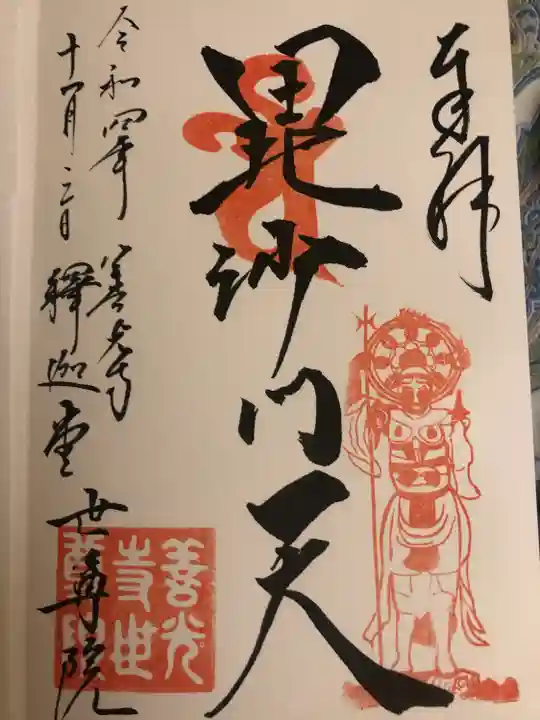 奉拝
毘沙門天
善光寺
釋迦堂 世尊院
令和四年
十一月二日
善光
寺世
尊院